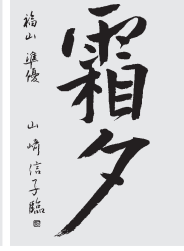 霜夕
福山 準優
山崎信子臨